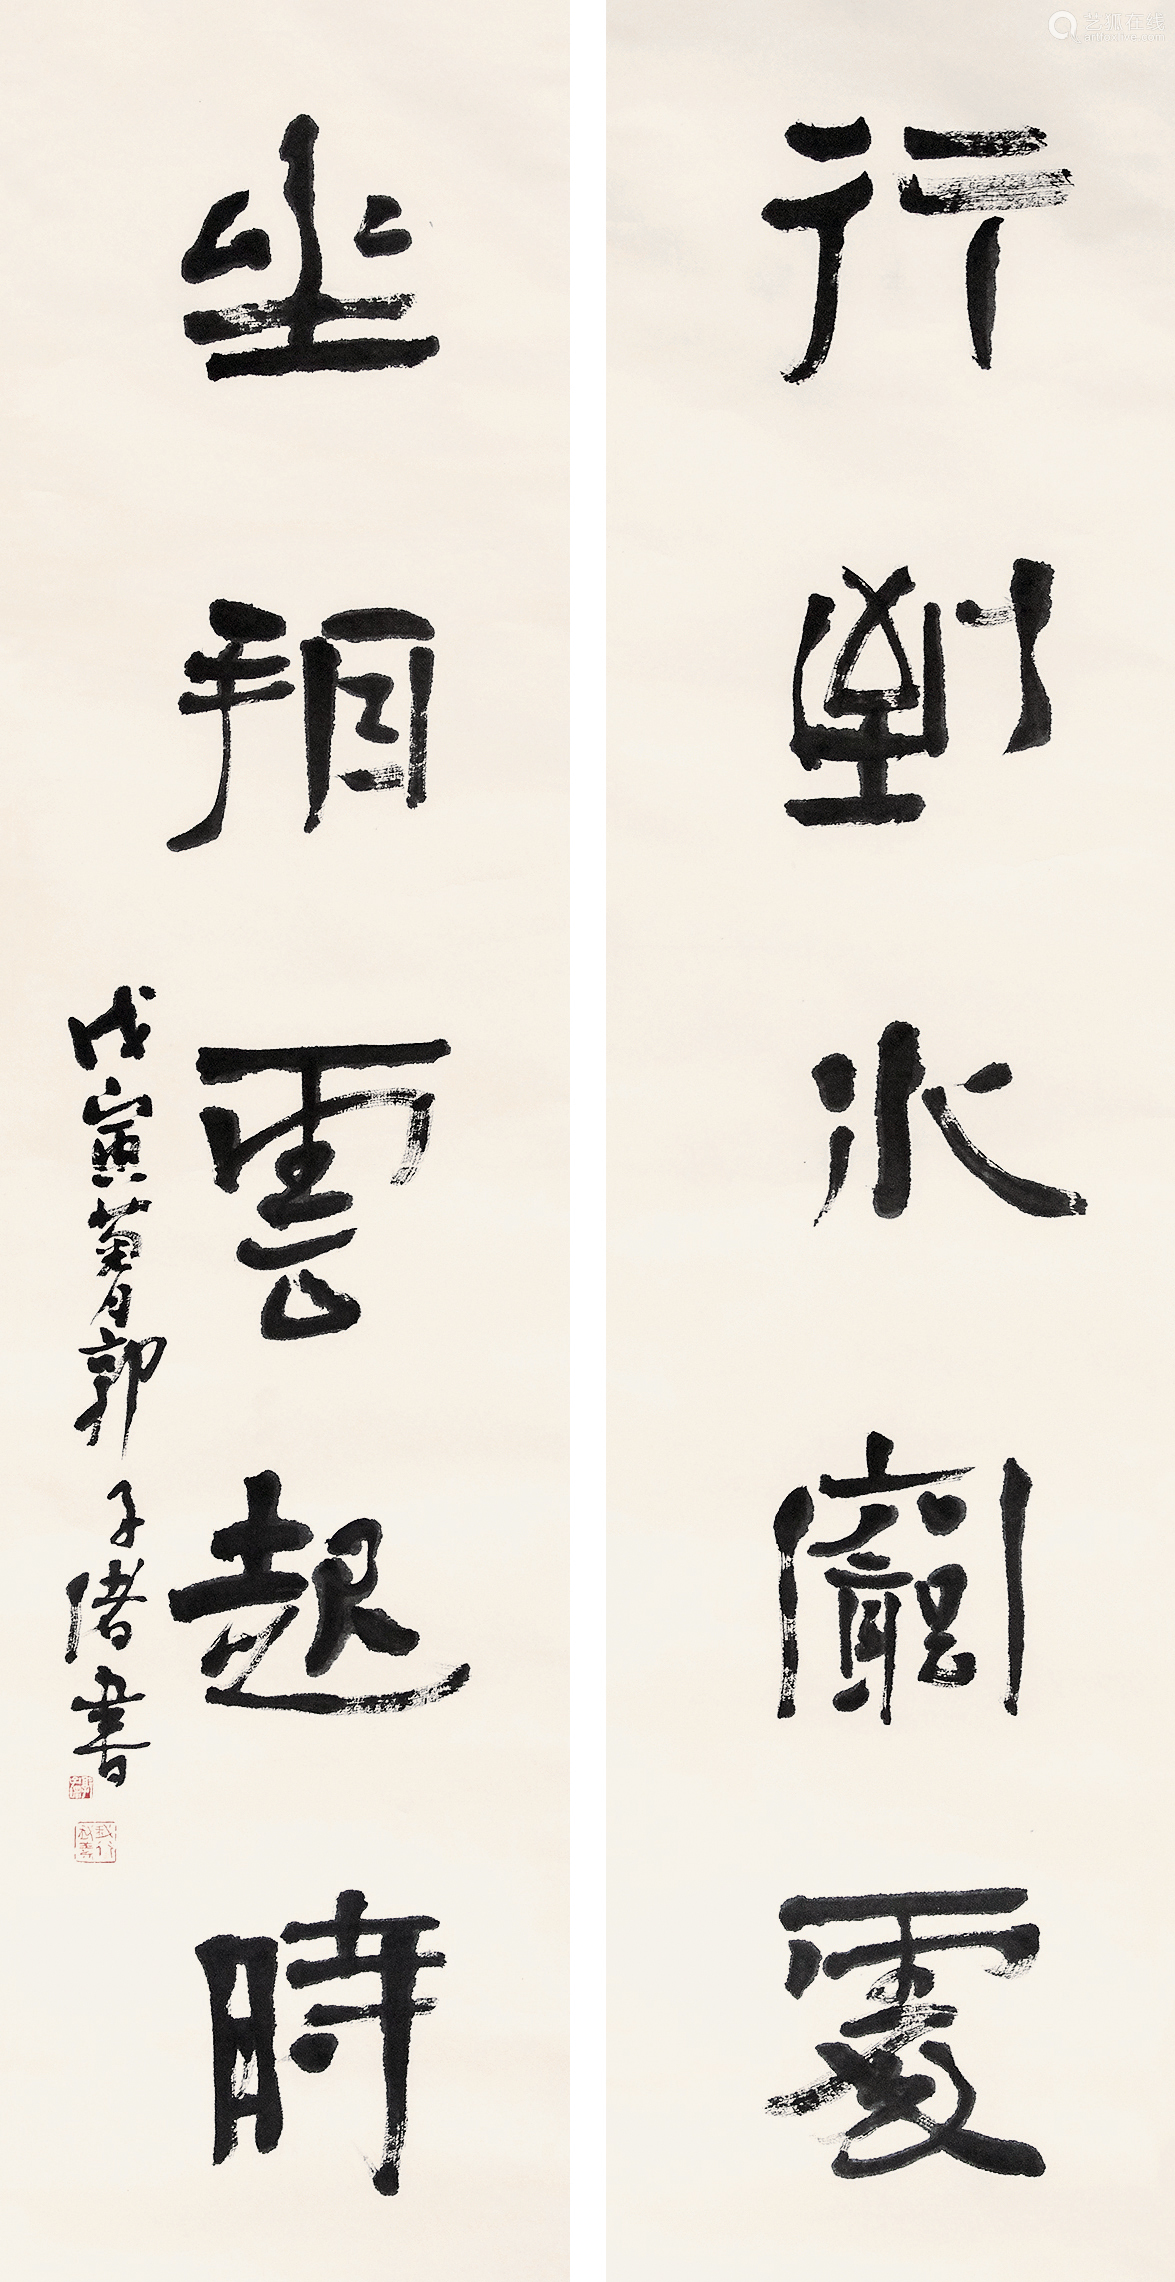 行到水窮處
坐看雲起時
戊寅菊月郭子緒書
艺狐在线